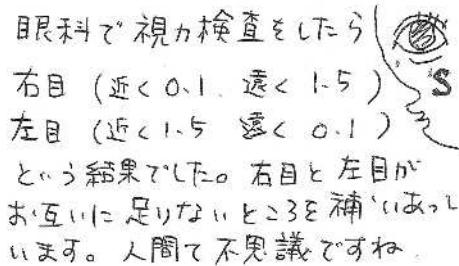 眼科で視力検査をしたら
右目 (近く 0.1 遠く 1.5)
左目 (近く 1.5 遠く 0.1)
という結果でした。右目と左目が
お互いに足りないところを補いあって
います。人間て不思議ですね
S